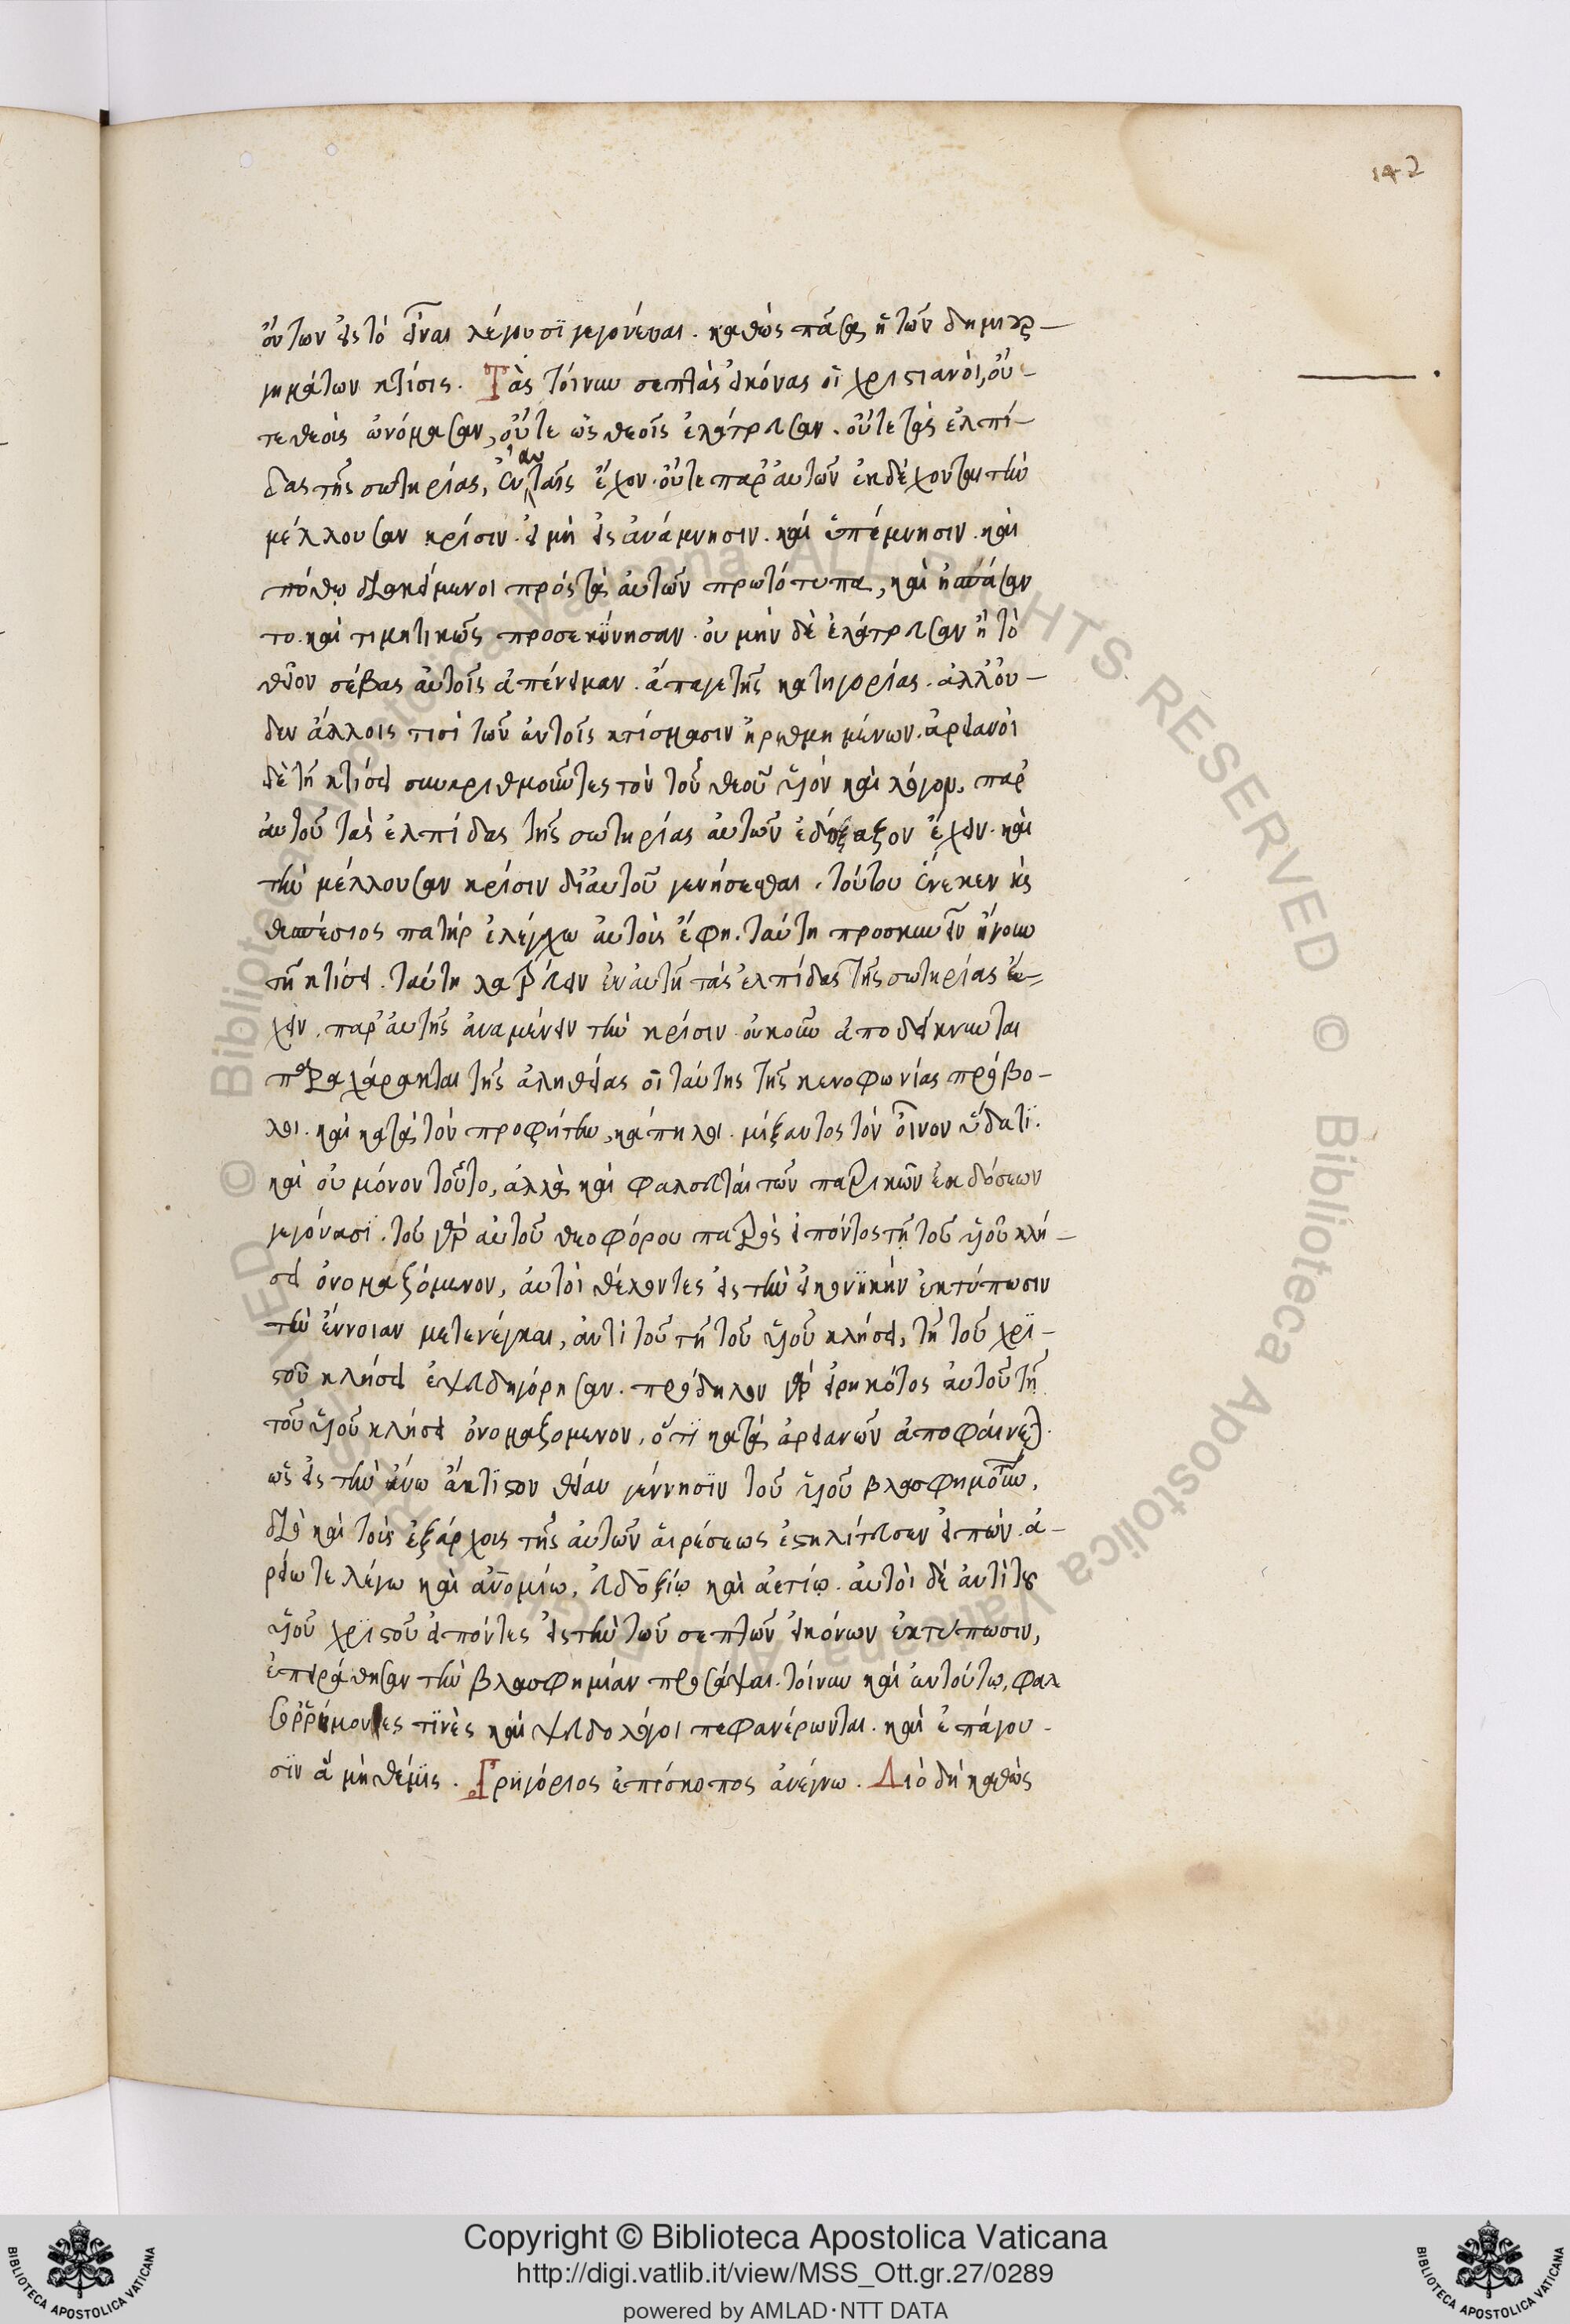 142
ὄντων εἰς τὸ εἶναι λέγουσϊ γεγονέναι. καθὼς πᾶσα ἡ τῶν δημιουρ-
γημάτων κτίσις. Τὰς τοίνυν σεπτὰς εἰκόνας οἱ χριστιανοὶ, οὔ-
τε θεοὺς ὠνόμασαν, οὔτε ὡς θεοῖς ἐλάτρευσαν. οὔτε τὰς ἐλπί-
δας τῆς σωτηρίας, ἐν αὐταῖς ἔχον. οὔτε παρ' αὐτῶν ἐκδέχονται τὴν
μέλλουσαν κρίσιν. εἰ μὴ εἰς ἀνάμνησιν. καὶ ὑπέμνησιν. καὶ
πόθῳ διακείμενοι πρὸς τὰ αὐτῶν πρωτότυπα, καὶ ἠσπάσαν
το. καὶ τιμητικῶς προσεκύνησαν. οὐ μὴν δὲ ἐλάτρευσαν ἢ τὸ
θεῖον σέβας αὐτοῖς ἀπένειμαν. ἄπαγε τῆς κατηγορίας. ἀλλ' οὐ-
δεν ἄλλοις τισὶ τῶν ἐν τοῖς κτίσμασιν ἠριθμημένων. ἀρειανοὶ
δὲ τῇ κτίσει συναριθμοῦντες τὸν τοῦ θεοῦ υἱὸν καὶ λόγον, παρ'
αὐτοῦ τὰς ἐλπίδας τῆς σωτηρίας αὐτῶν ἐδόξαζον ἔχειν. καὶ
τὴν μέλλουσαν κρίσιν δι' αὐτοῦ γενήσεσθαι. τούτου ἕνεκεν καὶ
θεσπέσιος πατὴρ ἐλέγχων αὐτοὺς ἔφη. ταύτη προσκυνεῖν ἤγουν
τῇ κτίσει. ταύτη λατρεύειν ἐν αὐτῇ τὰς ἐλπίδας τῆς σωτηρίας ἔ-
χειν. παρ' αὐτῆς ἀναμένειν τὴν κρίσιν. οὐκοῦν ἀποδείκνυνται
παραχάρακται τῆς ἀληθείας οἱ ταύτης τῆς κενοφωνίας πρόβο-
λοι. καὶ κατὰ τὸν προφήτην, κάπηλοι. μίξαντος τὸν οἶνον ὕδατϊ.
καὶ οὐ μόνον τοῦτο, ἀλλὰ καὶ φαλσευταὶ τῶν πατρικῶν ἐκδόσεων
γεγόνασϊ. τοῦ γὰρ αὐτοῦ θεοφόρου πατρὸς εἰπόντος τῇ τοῦ υἱοῦ κλή-
σει ὀνομαζόμενον, αὐτοὶ θέλοντες εἰς τὴν εἰκονϊκὴν ἐκτύπωσιν
τὴν ἔννοιαν μετενέγκαι, ἀντὶ τοῦ τῇ τοῦ υἱοῦ κλήσει, τῇ τοῦ χρϊ-
στοῦ κλήσει ἐψευδηγόρησαν. πρόδηλον γὰρ εἰρηκότος αὐτοῦ τῇ
τοῦ υἱοῦ κλήσει ὀνομαζομενον, ὅτϊ κατὰ ἀρειανῶν ἀποφαίνεται.
ὡς εἰς τὴν ἄνω ἄκτϊστον θείαν γέννησϊν τοῦ υἱοῦ βλασφημοῦντων.
διὸ καὶ τοὺς ἐξάρχους τῆς αὐτῶν αἱρέσεως ἐστηλίτευσεν εἰπών. ἀ-
ρείω τε λέγω καὶ ἀνομίω, εὐδοξίῳ καὶ ἀετίῳ. αὐτοὶ δὲ ἀντὶ τοῦ
υἱοῦ χριστοῦ εἰπόντες εἰς τὴν τῶν σεπτῶν εἰκόνων ἐκτύπωσιν,
ἐπειράθησαν τὴν βλασφημίαν προσάψαι. τοίνυν καὶ ἐν τούτω, φαλ
σορρήμονες τϊνὲς καὶ ψευδολόγοι πεφανέρωνται. καὶ ἐπάγου-
σϊν ἃ μὴ θέμϊς. Γρηγόριος ἐπίσκοπος ἀνέγνω. Διὸ δὴ καθὼς
Copyright © Biblioteca Apostolica Vaticana
http://digi.vatlib.it/view/MSS_Ott.gr.27/0289
powered by AMLAD·NTT DATA